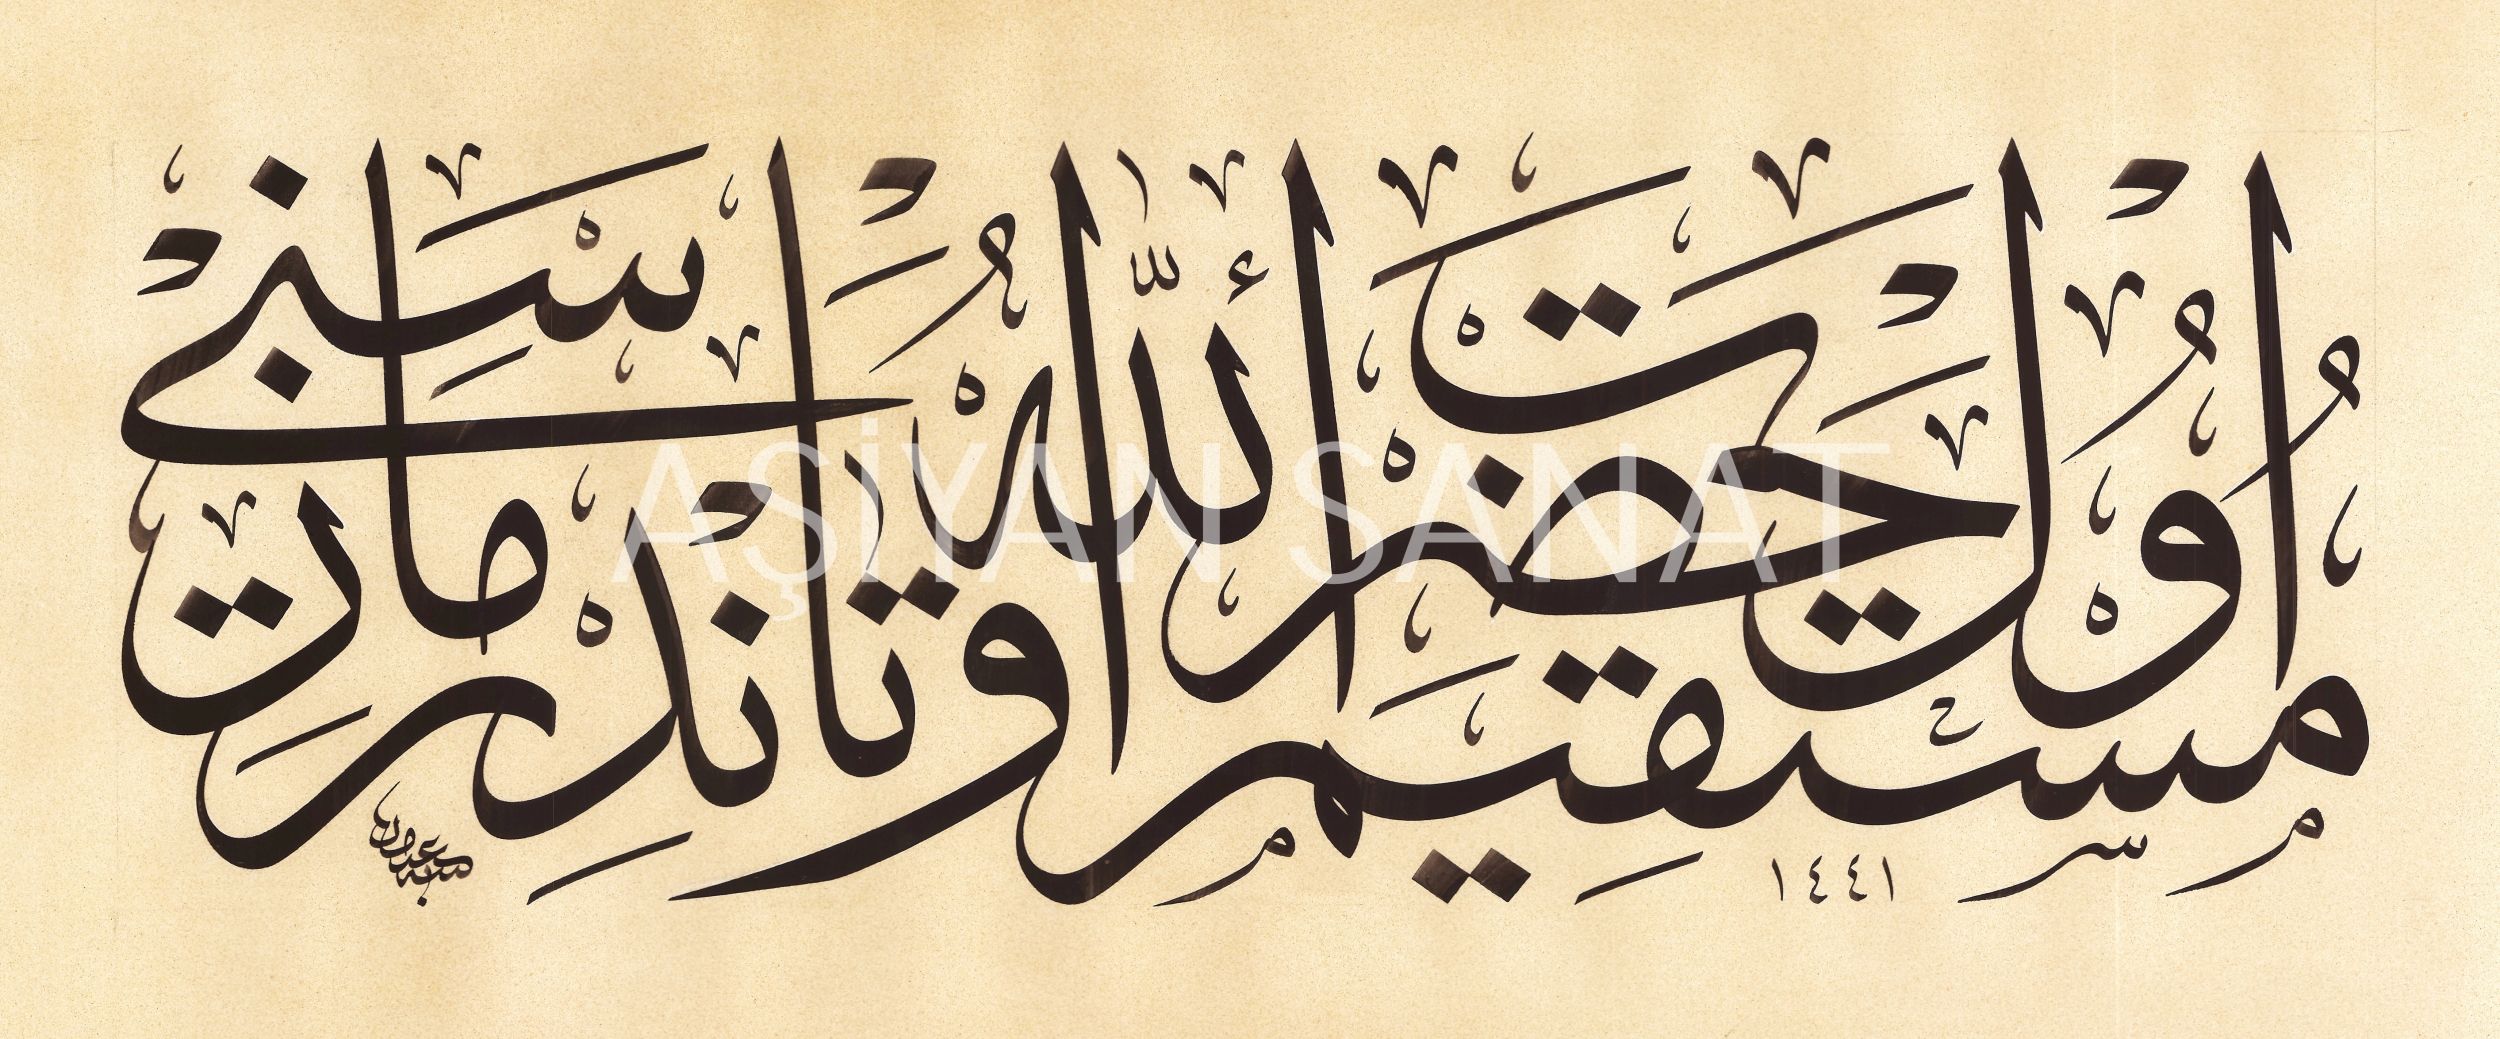 مستقيم اول حضرت الله اوتاندرماز سني
١٤٤١
AŞİYAN SANAT